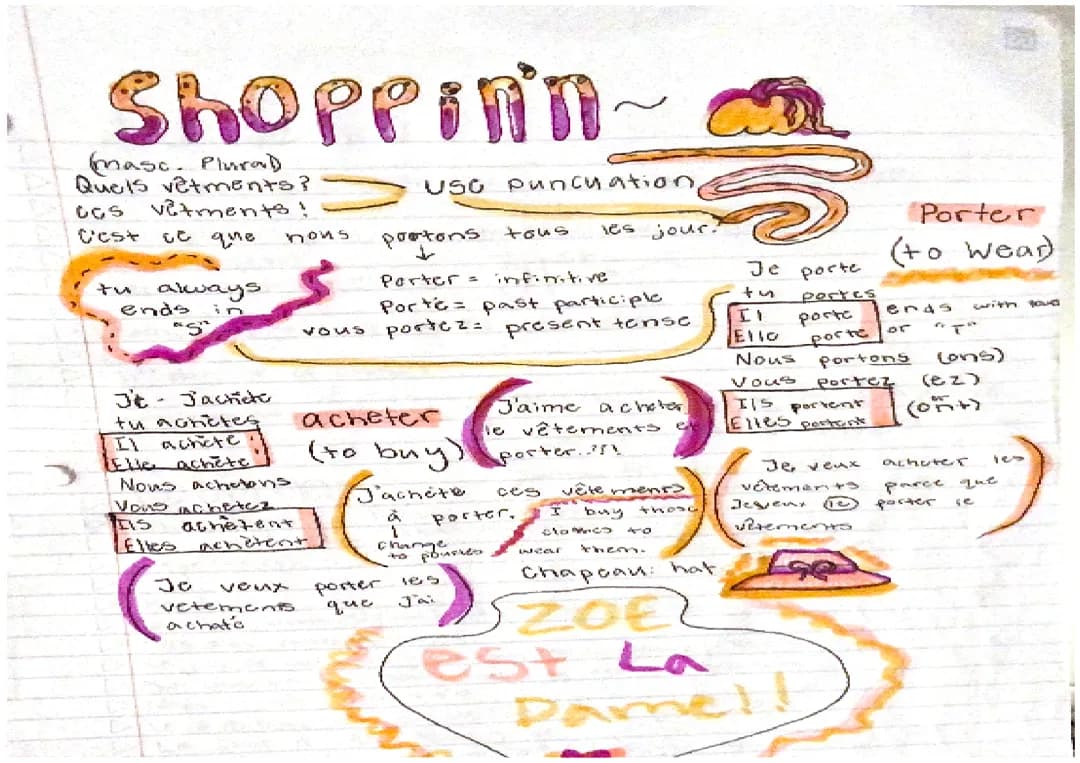 Shoppin'n ~
(masc. Plural)
Quels vêtments?
ces vêtments!
use puncuation
C'est ce que nous portons tous les jour.
Porter
(to wear)
tu always
ends in
"s"
Porter = infinitive
Porté = past participle
vous portez = present tense
Je porte
tu portes
Il porte
Elle porte
ends with
or "T"
Nous portons (ons)
Vous portez (ez)
Ils portent
Elles portent
(ont)
Je - J'achète
tu achètes
Il achète
Elle achète
Nous achetons
Vous achetez
Ils achètent
Elles achètent
acheter
(to buy)
J'aime acheter
le vêtements et
porter..!!!
J'achète ces vêtements
à porter.
change
to pources
I buy those
clothes to
wear them.
Je veux acheter les
vêtements parce que
Jeveux le porter le
vêtements
Chapeau: hat
Je veux porter les
vetements que J'ai
achaté
ZOE
est La
Dame!!